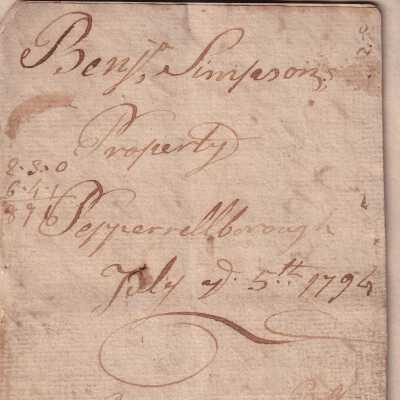 Benjn Simpsons
Property
2.3.0
6.4.1
8 7 1
Pepperrellborough
July yd. 5th 1794